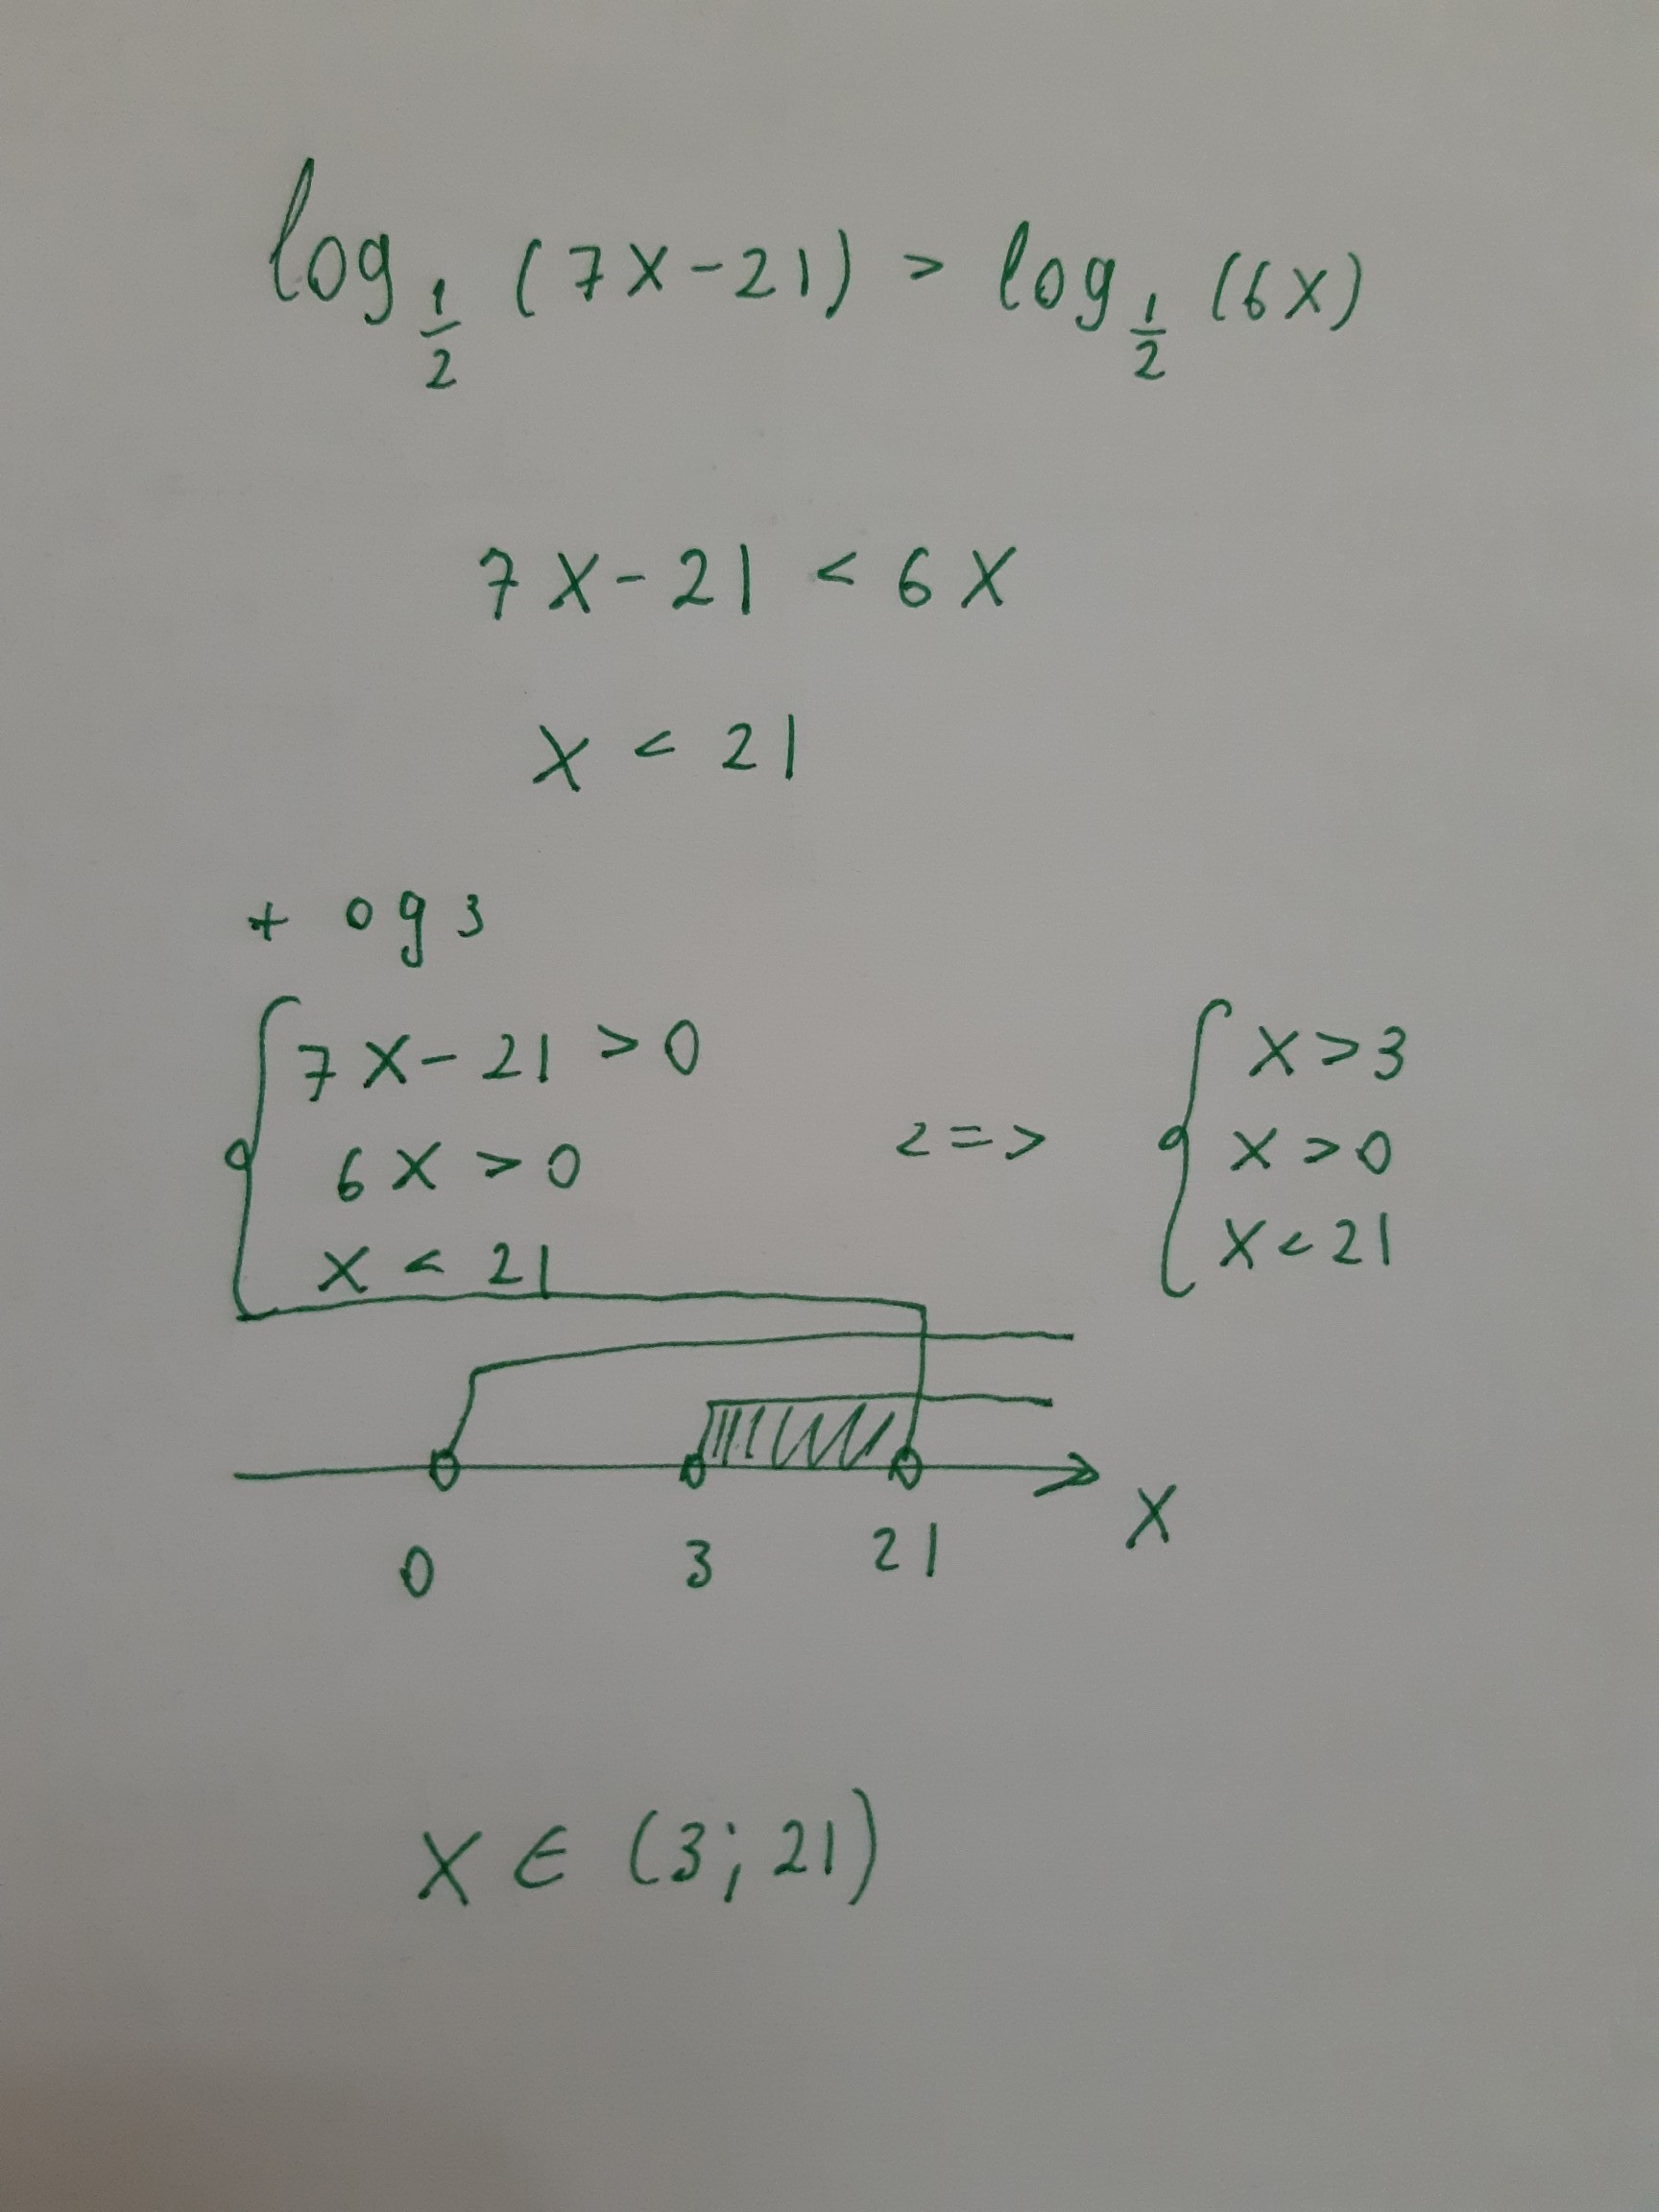 log 1/2 (7x-21) > log 1/2 (6x)
7x-21 < 6x
x < 21
+ одз
{ 7x-21 > 0
6x > 0
x < 21
<=>
{ x > 3
x > 0
x < 21
0 3 21 x
x ∈ (3; 21)